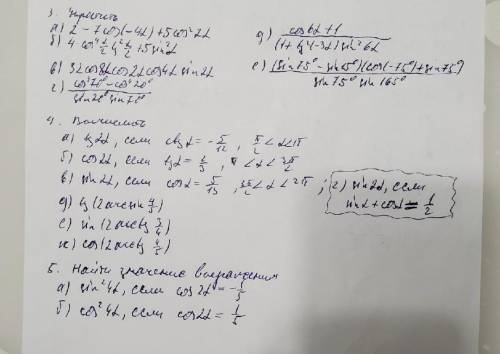 3. Упростить
а) 2 - 7cos(-4α) + 5cos²2α
б) 4 cos⁴ α/2 tg² α/2 + 5 sin²α
в) 32 cos8α cos2α cos4α sin2α
г) (cos⁴70° - cos⁴20°) / (sin20° sin70°)
д) (cos6α + 1) / ((1 + tg²(-3α)) sin²6α)
е) ((sin75° - sin15°)(cos(-75°) + sin75°)) / (sin75° sin165°)
4. Вычислить
а) tg2α, если ctgα = -5/12, π/2 < α < π
б) cos2α, если tgα = 1/3, π < α < 3π/2
в) sin2α, если cosα = 5/13, 3π/2 < α < 2π ;
г) sin2α, если
sinα + cosα = 1/2
д) tg(2arcsin 4/5)
е) sin(2arctg 3/4)
ж) cos(2arctg 4/5)
5. Найти значение выражения
а) sin²4α, если cos2α = -1/5
б) cos²4α, если cos2α = 1/5